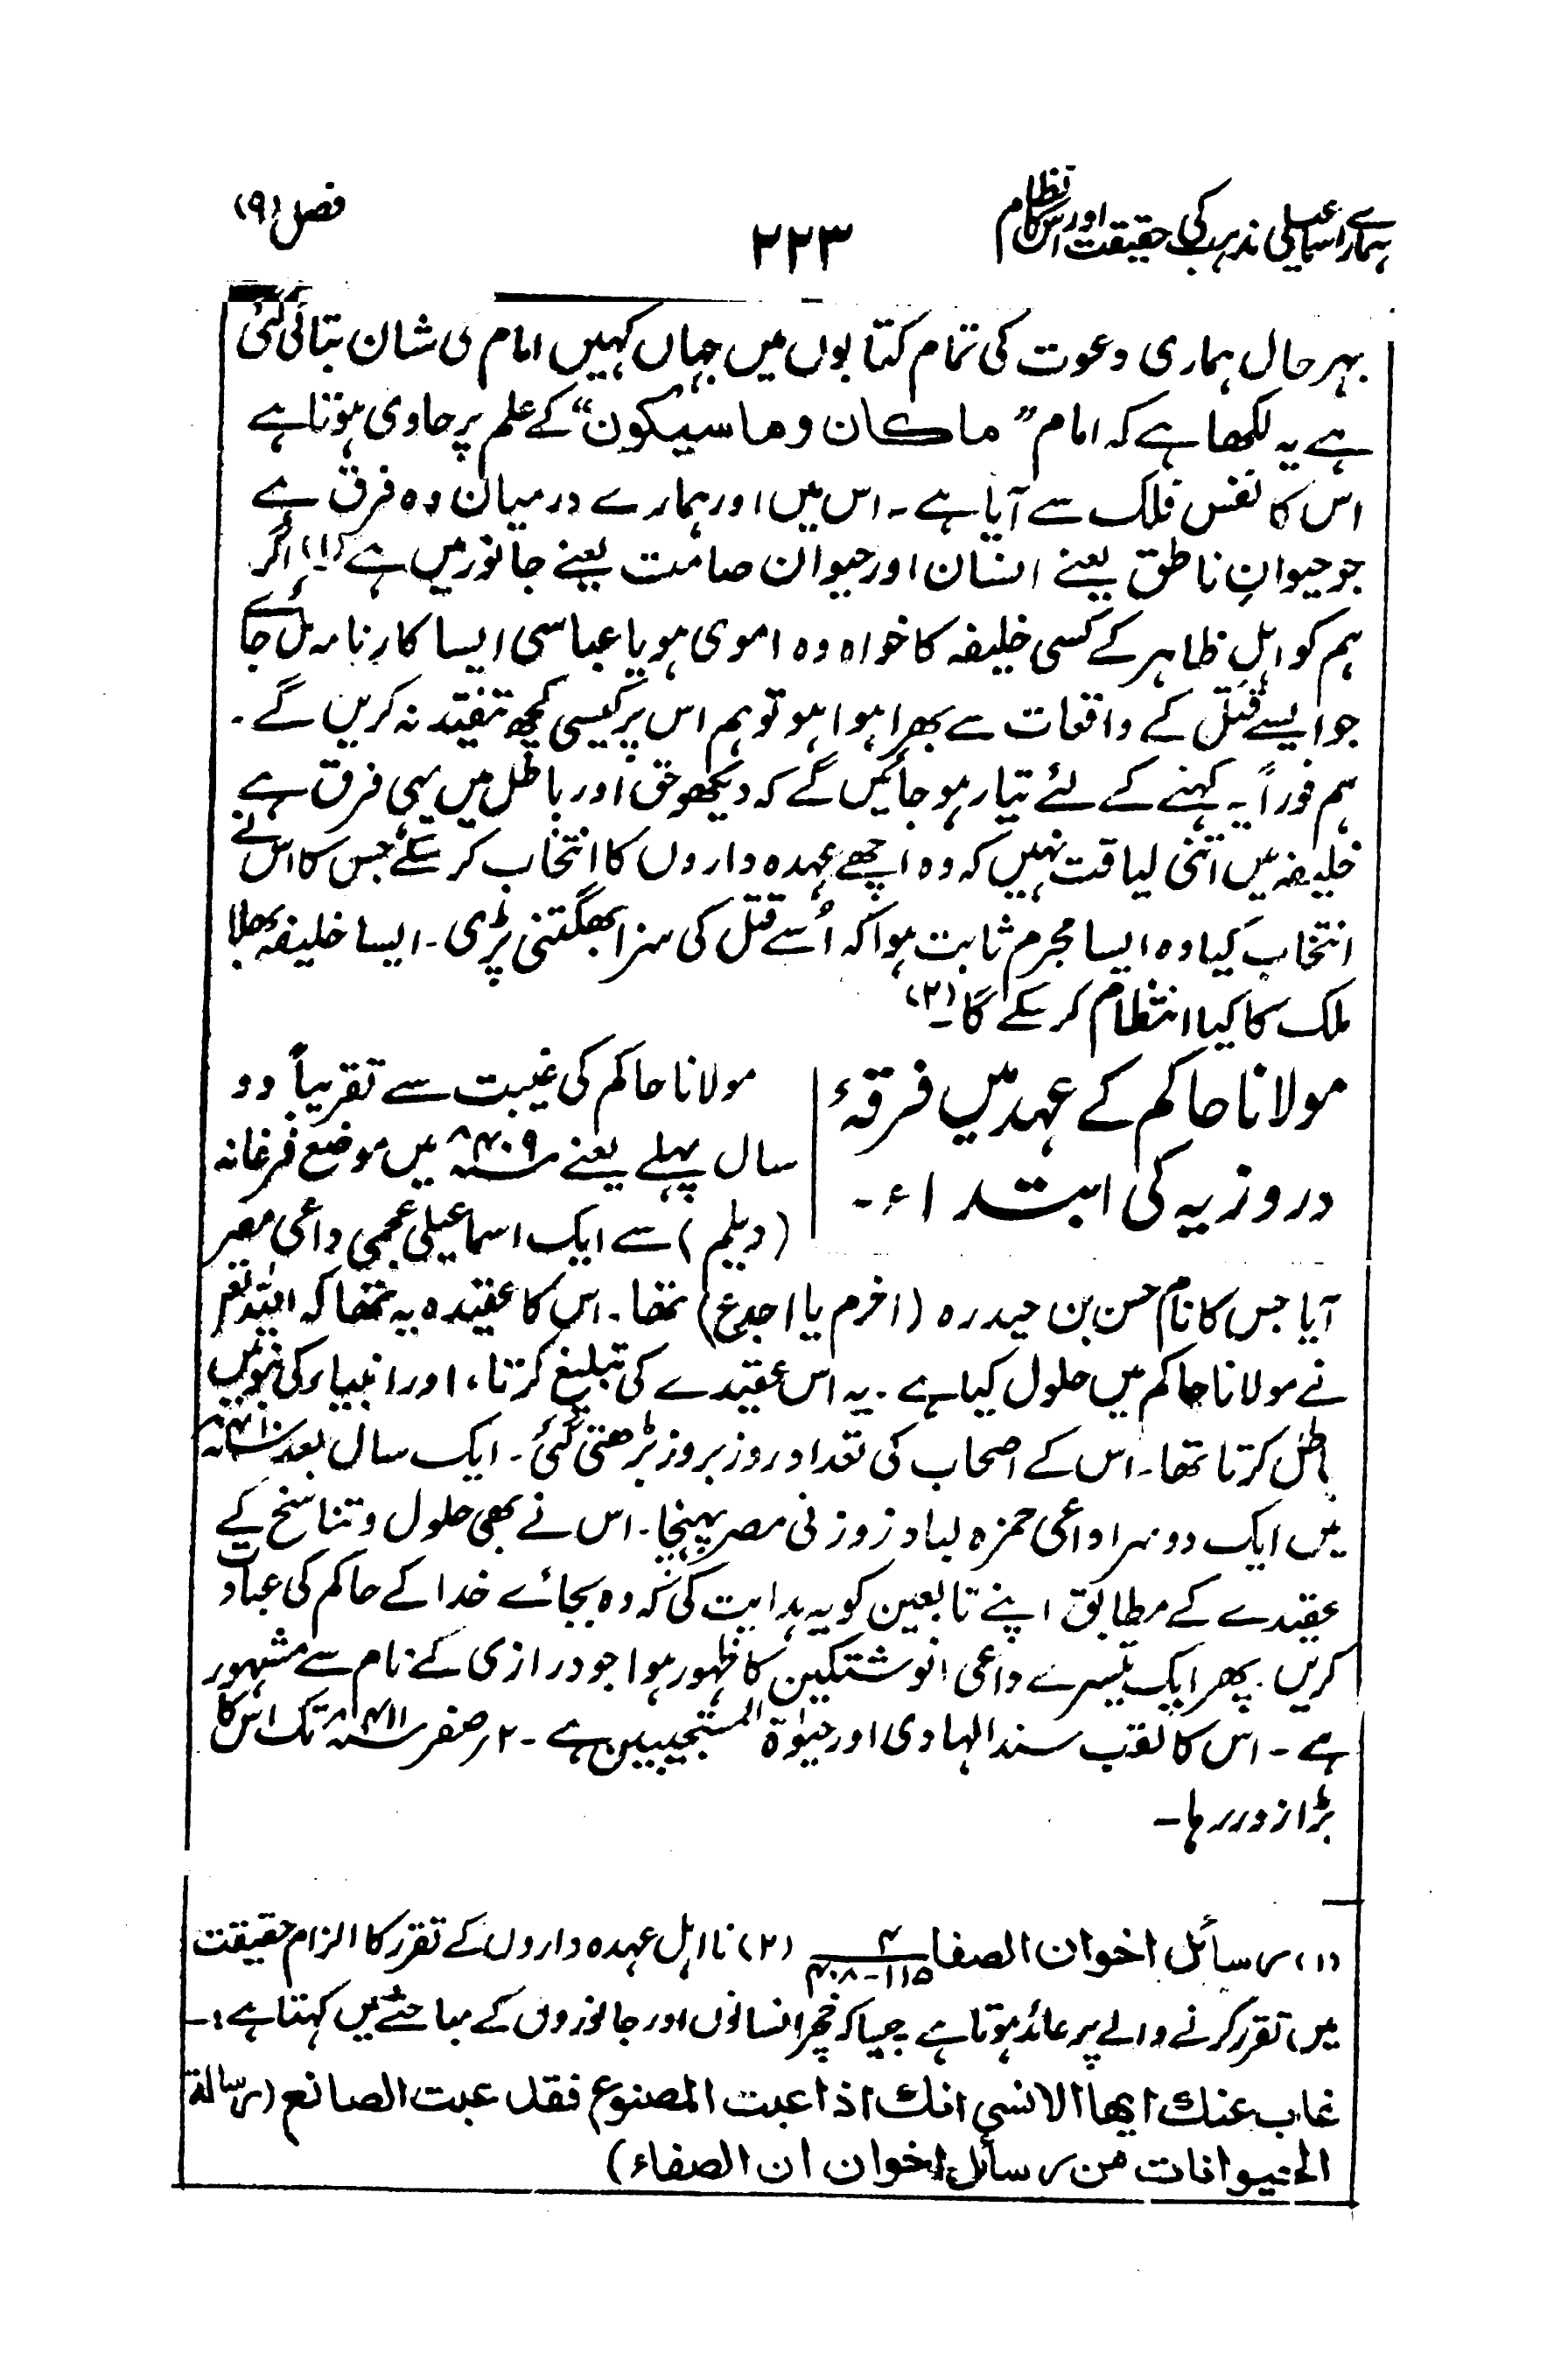 ہمارے اسماعیلی مذہب کی حقیقت اور اس کا نظام
۲۲۳
فصل (۹)
بہر حال ہماری دعوت کی تمام کتابوں میں جہاں کہیں امام ی شان بتائی گئی
ہے یہ لکھا ہے کہ امام ”ماکان وما سیکون“ کے علم پر حاوی ہوتا ہے
اس کا نفس فلک سے آیا ہے ۔ اس میں اور ہمارے درمیان وہ فرق ہے
جو حیوانِ ناطق یعنے انسان اور حیوان صامت یعنے جانور میں ہے (۱) اگر
ہم کو اہلِ ظاہر کے کسی خلیفہ کا خواہ وہ اموی ہو یا عباسی ایسا کارنامہ مل جائے
جو ایسے قتل کے واقعات سے بھرا ہوا ہو تو ہم اس پر کیسی کچھ تنقید نہ کریں گے ۔
ہم فوراً یہ کہنے کے لئے تیار ہو جائیں گے کہ دیکھو حق اور باطل میں یہی فرق ہے
خلیفہ میں اتنی لیاقت نہیں کہ وہ اچھے عہدہ داروں کا انتخاب کر سکے جس کا اس نے
انتخاب کیا وہ ایسا مجرم ثابت ہوا کہ اُسے قتل کی سزا بھگتنی پڑی ۔ ایسا خلیفہ بھلا
ملک کا کیا انتظام کر سکے گا ۔ (۲)
مولانا حاکم کے عہد میں فرقۂ
دروزیہ کی ابتداء ۔
مولانا حاکم کی غیبت سے تقریباً دو
سال پہلے یعنے ۴۰۹ھ میں موضع فرغانہ
(دیلم) سے ایک اسماعیلی عجمی داعی مصر
آیا جس کا نام حسن بن حیدرہ (اخرم یا اجدع) تھا ۔ اس کا عقیدہ یہ تھا کہ اللہ تعالیٰ
نے مولانا حاکم میں حلول کیا ہے ۔ یہ اس عقیدے کی تبلیغ کرتا ، اور انبیاء کی نبوتیں
باطل کرتا تھا ۔ اس کے اصحاب کی تعداد روز بروز بڑھتی گئی ۔ ایک سال بعد ۴۱۰ھ
میں ایک دوسرا داعی حمزہ لباد زوزنی مصر پہنچا ۔ اس نے بھی حلول و تناسخ کے
عقیدے کے مطابق اپنے تابعین کو یہ ہدایت کی کہ وہ بجائے خدا کے حاکم کی عبادت
کریں ۔ پھر ایک تیسرے داعی انوشتکین کا ظہور ہوا جو درازی کے نام سے مشہور
ہے ۔ اس کا لقب سند الہادی اور حیوٰۃ المستجیبین ہے ۔ ۲ر صفر ۴۱۱ھ تک اس کا
بڑا زور رہا ۔
(۱) رسائل اخوان الصفا ۴/۱۱۵-۴۰۸ (۲) نااہل عہدہ داروں کے تقرر کا الزام حقیقت
میں تقرر کرنے والے پر عائد ہوتا ہے جیسا کہ خچر انسانوں اور جانوروں کے مباحثے میں کہتا ہے :۔
غاب عنك ایها الانسی انك اذا عبت المصنوع فقد عبت الصانع (رسالة
الحیوانات من رسائل اخوان ان الصفاء)